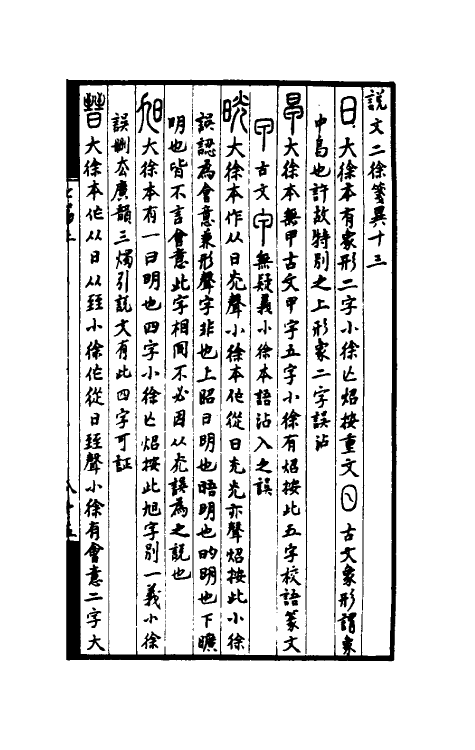 說文二徐箋異十三
日 大徐本有象形二字小徐亾炤按重文 古文象形謂象
中烏也許故特別之上形象二字誤沾
早 大徐本無甲古文甲字五字小徐有炤按此五字校語篆文
甲古文甲無疑義小徐本語沾入之誤
晄 大徐本作从日光聲小徐本作從日光光亦聲炤按此小徐
誤認為會意兼形聲字非也上昭日明也晤明也旳明也下曠
明也皆不言會意此字相閒不必因从光誤為之說也
旭 大徐本有一曰明也四字小徐亾炤按此旭字別一義小徐
誤刪厺廣韻三燭引說文有此四字可証
大徐本作从日从臸小徐作從日臸聲小徐有會意二字大